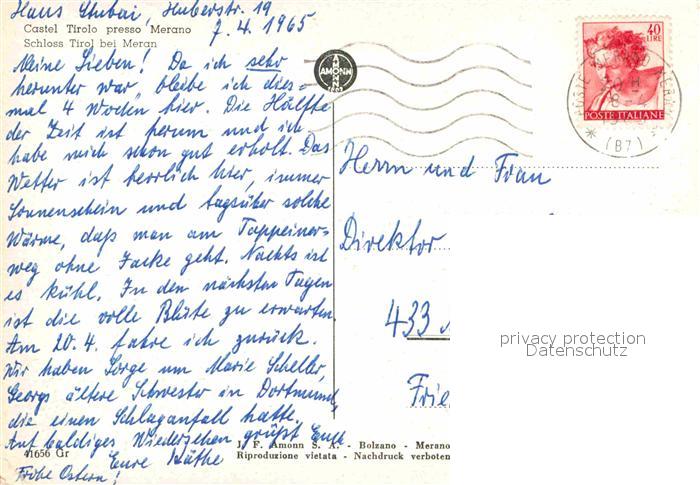 Haus Stubai, Huberstr. 19
Castel Tirolo presso Merano
Schloss Tirol bei Meran
7.4.1965
Meine Lieben! Da ich sehr
herunter war, bleibe ich dies-
mal 4 Wochen hier. Die Hälfte
der Zeit ist herum und ich
habe mich schon gut erholt. Das
Wetter ist herrlich hier, immer
Sonnenschein und tagsüber solche
Wärme, daß man am Tappeiner-
weg ohne Jacke geht. Nachts ist
es kühl. In den nächsten Tagen
ist die volle Blüte zu erwarten.
Am 20.4. fahre ich zurück.
Wir haben Sorge um Marie Scheller,
Georgs ältere Schwester in Dortmund,
die einen Schlaganfall hatte.
Auf baldiges Wiedersehen grüßt Euch
Eure Käthe
Frohe Ostern!
41656 Gr
AMONN
40
LIRE
POSTE ITALIANE
(BZ)
Herrn und Frau
Direktor
433
Frie
privacy protection
Datenschutz
J. F. Amonn S. A. - Bolzano - Merano
Riproduzione vietata - Nachdruck verboten